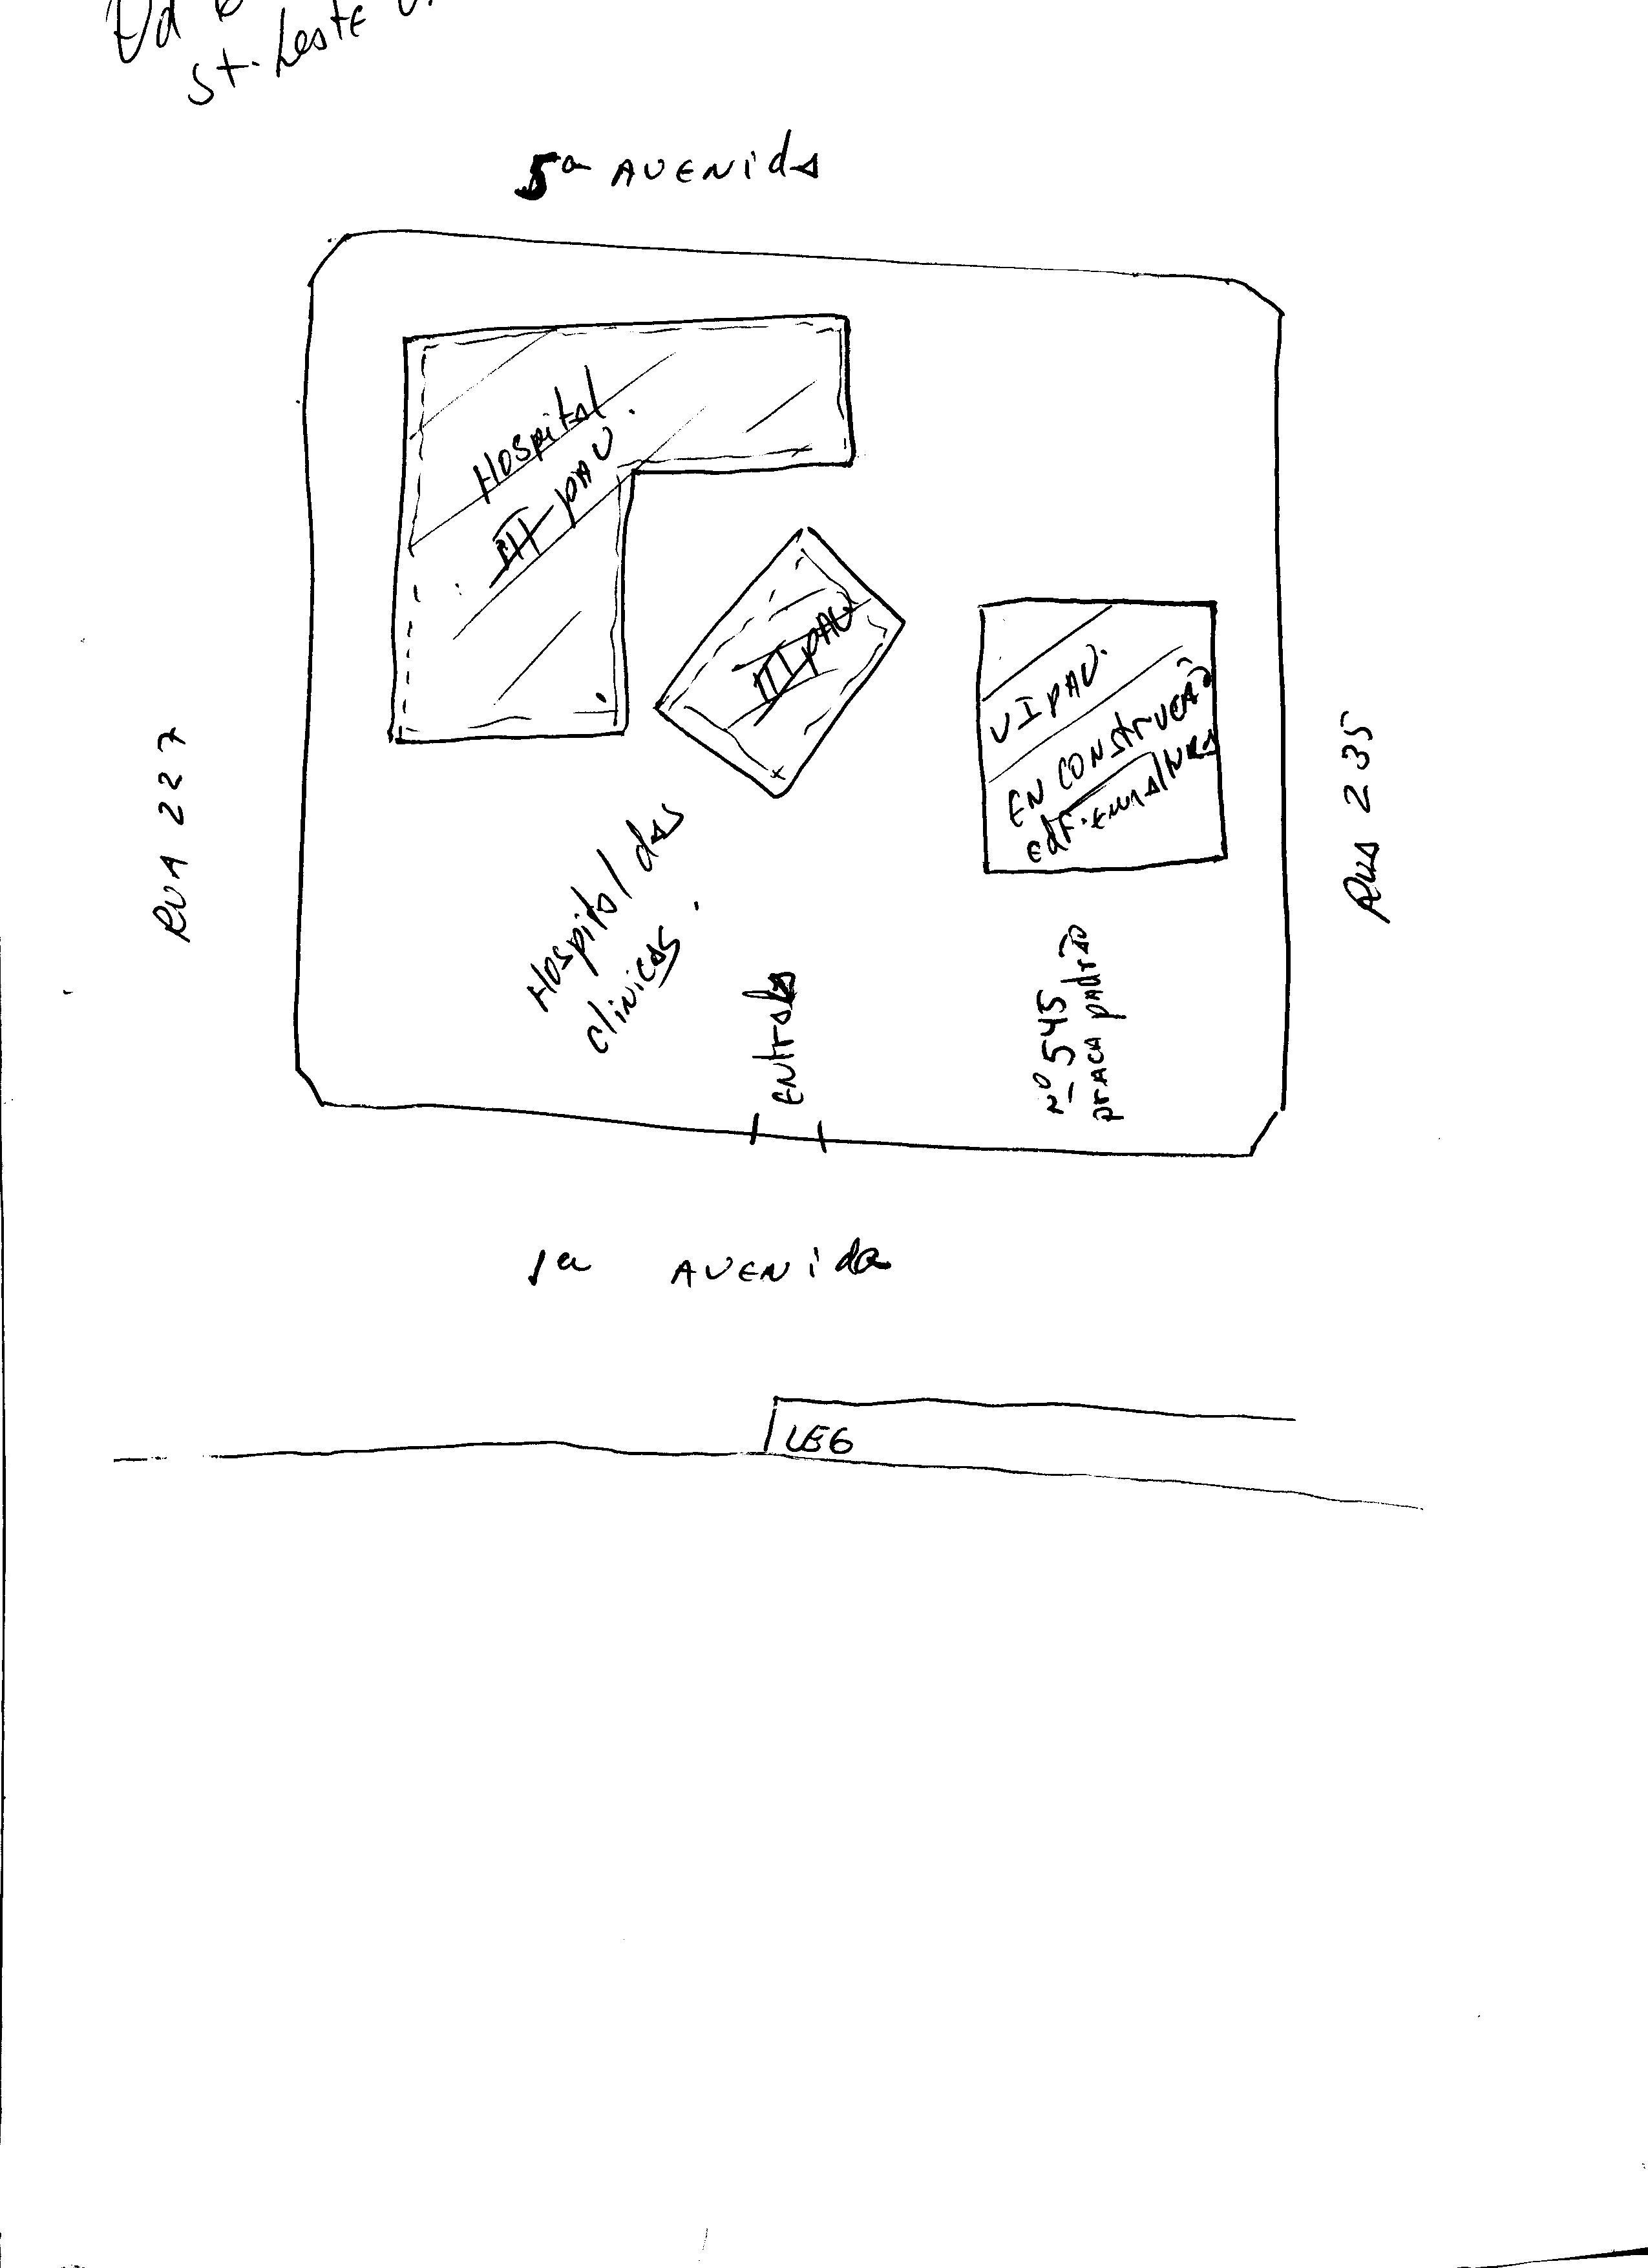 Qd
St. Leste
5ª AVENIDA
Hospital
III PAV.
III PAV
VI PAV.
EN CONStrUCÃO
Edf.
RUA 227
RUA 235
Hospital das
clinicas.
ENtrada
Nº 545
prACA pAdrÃo
1ª AVENida
LEG